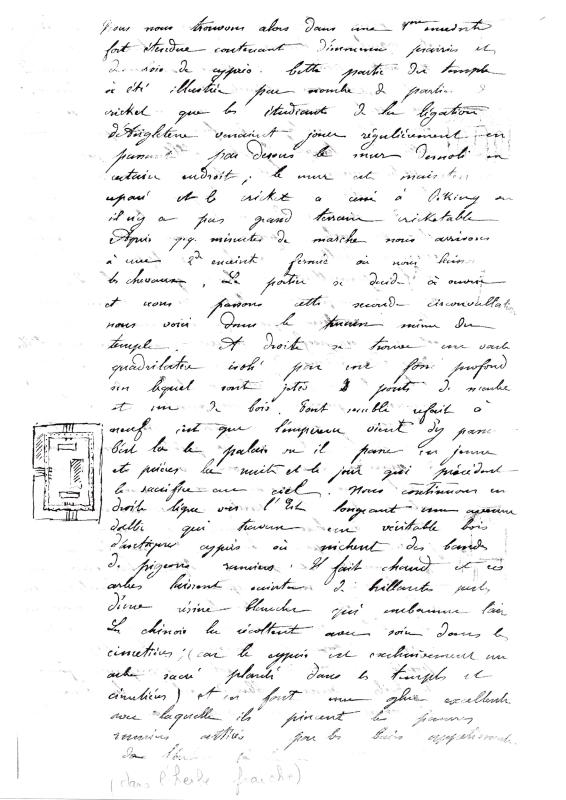 Nous nous trouvons alors dans une enceinte
fort étendue contenant d'immenses prairies et
de bois de cyprès. Cette partie du temple
a été illustrée par nombre de parties de
cricket que les étudiants de la légation
d'Angleterre venaient jouer régulièrement en
passant par dessus le mur démoli en
certain endroit ; le mur est maintenant
réparé et le cricket a cessé à Péking car
il n'y a pas grand terrain cricketable
Après qq. minutes de marche nous arrivons
à une 2e enceinte fermée où nous laissons
les chevaux. Le portier se décide à ouvrir
et nous passons cette seconde circonvallation
nous voici dans le terrain même du
temple. A droite se trouve un vaste
quadrilatère isolé par une fosse profond
sur lequel sont jetés ponts de marbre
et un de bois. Tout semble refait à
neuf c'est que l'empereur vient d'y passer
C'est là le palais où il passe en jeune
et prières la nuit et le jour qui précèdent
le sacrifice au ciel. Nous continuons en
droite ligne vers l'Est longeant une avenue
dallée qui traverse un véritable bois
d'antiques cyprès où nichent des bandes
de pigeons ramiers. Il fait chaud et ces
arbres laissent suinter de brillantes perles
d'une résine blanche qui embaume l'air
Les chinois la récoltent avec soin dans les
cimetières ; (car le cyprès est exclusivement un
arbre sacré planté dans les temples et
cimetières) et en font une glue excellente
avec laquelle ils pincent les pauvres
ramiers attirés par les
de l'eau
(dans l'herbe fraiche)